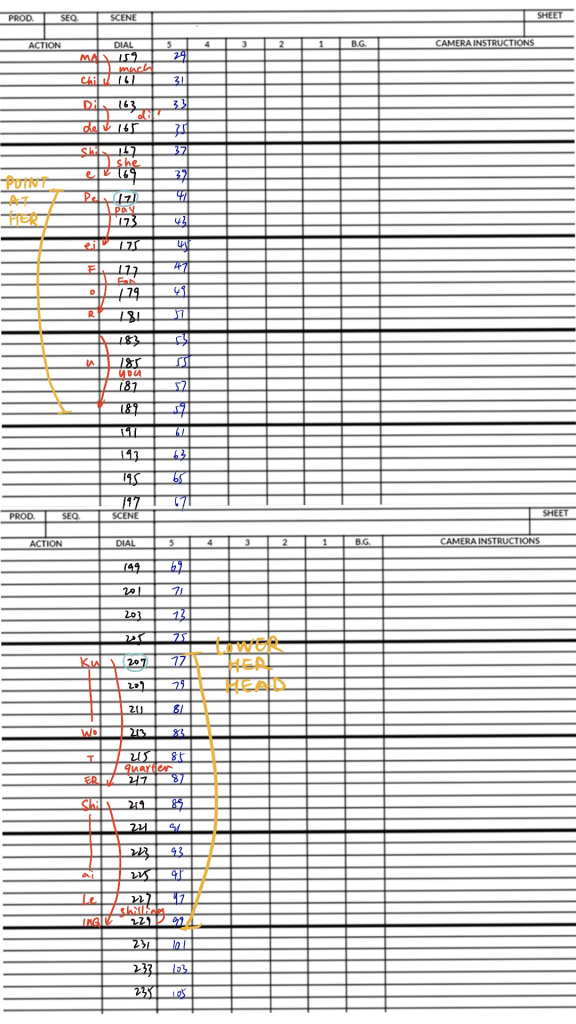 PROD. SEQ. SCENE SHEET
ACTION DIAL 5 4 3 2 1 B.G. CAMERA INSTRUCTIONS
MA 159 29
much
Chi 161 31
Di 163 33
di'
de 165 35
Shi 167 37
she
e 169 39
POINT AT HER
Pe 171 41
pay
173 43
ei 175 45
F 177 47
For
o 179 49
R 181 51
183 53
u 185 55
you
187 57
189 59
191 61
193 63
195 65
197 67
PROD. SEQ. SCENE SHEET
ACTION DIAL 5 4 3 2 1 B.G. CAMERA INSTRUCTIONS
199 69
201 71
203 73
205 75
LOWER HER HEAD
Ku 207 77
209 79
211 81
Wo 213 83
T 215 85
quarter
ER 217 87
Shi 219 89
221 91
223 93
ai 225 95
Le 227 97
shilling
ING 229 99
231 101
233 103
235 105